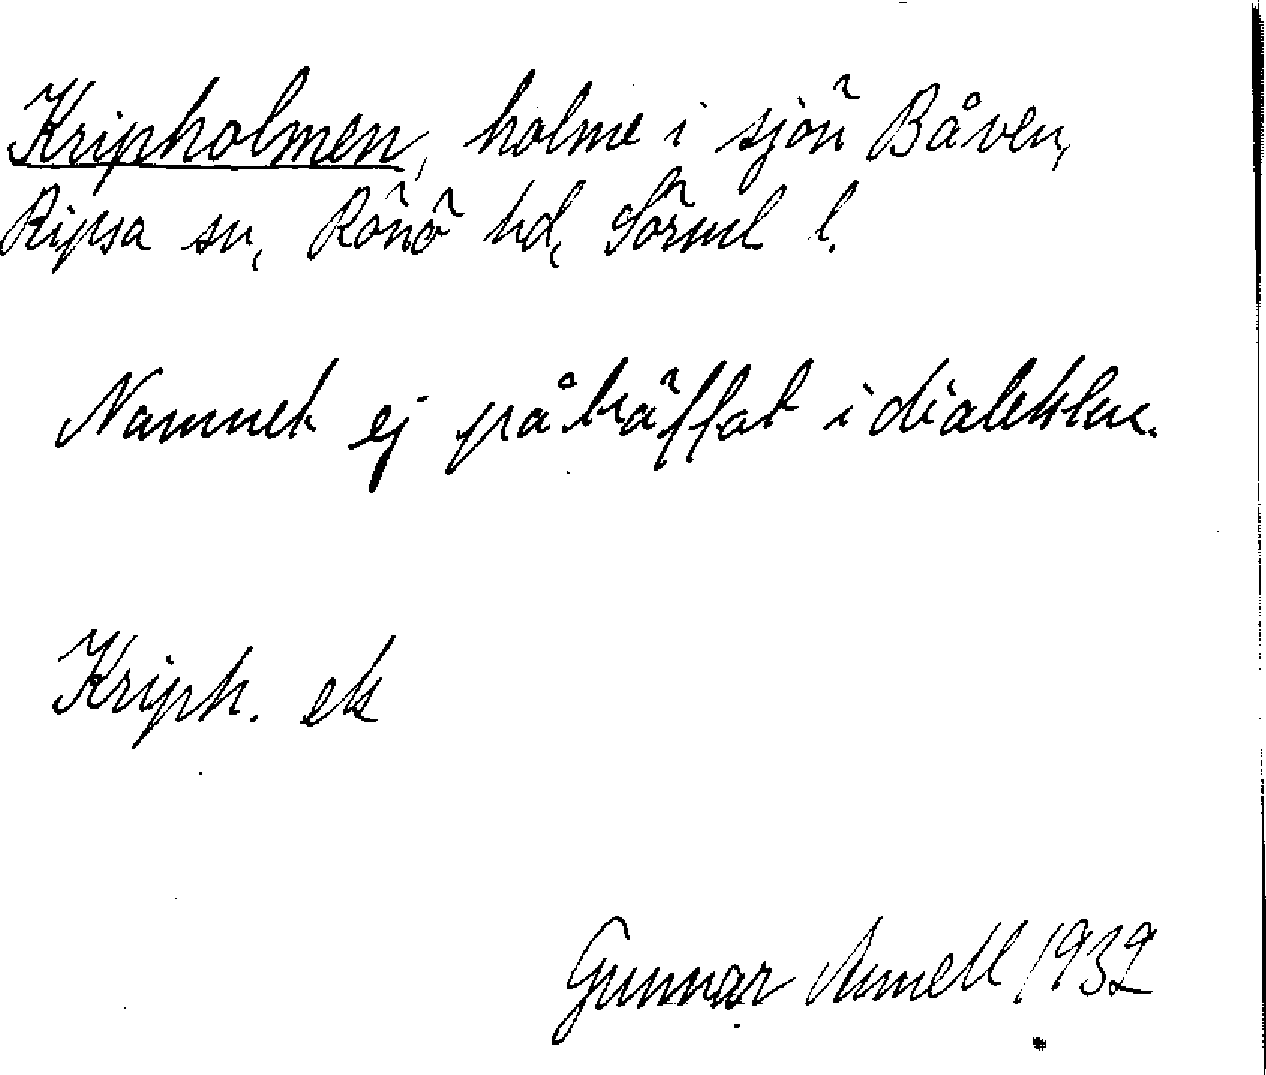 Kripholmen, holme i sjön Båven,
Ripsa sn, Rönö hd, Sörml l.
Namnet ej påträffat i dialekten.
Kriph. ek
Gunnar 1932